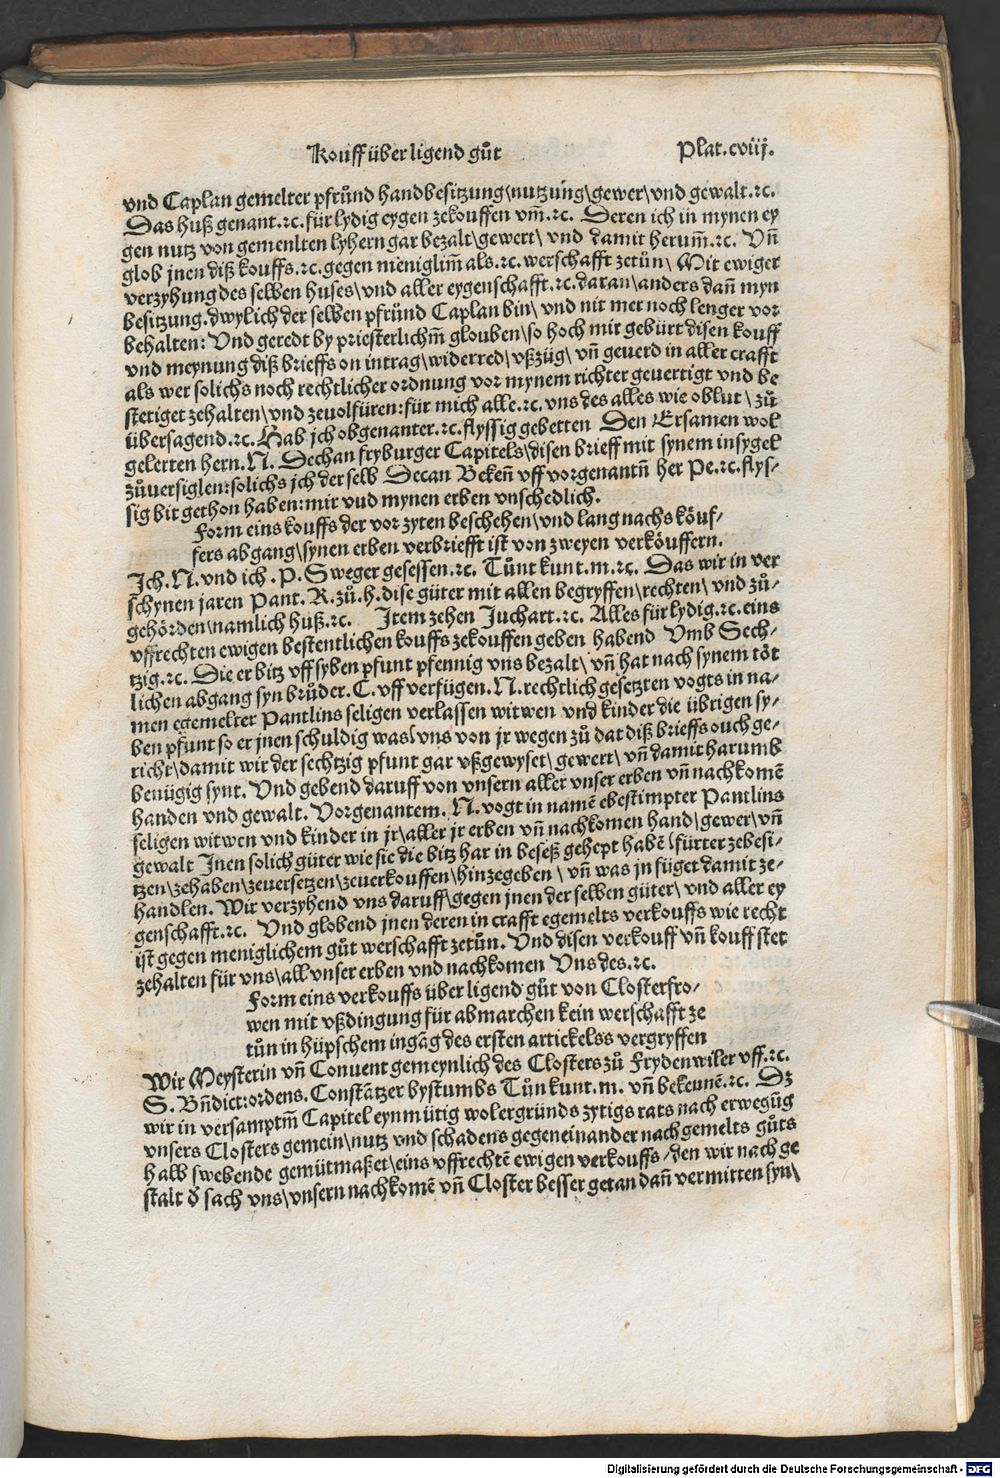 Kouff über ligend gůt Plat.cviij.
vnd Caplan gemelter pfrůnd handbesitzung\nutzung\gewer\vnd gewalt.ꝛc.
Das huß genant.ꝛc.für lydig eygen zekouffen vm̄.ꝛc. Deren ich in mynen ey
gen nutz von gemenlten lyhern gar bezalt\gewert\ vnd damit herum̄.ꝛc. Vn̄
glob jnen diß kouffs.ꝛc.gegen meniglim̄ als.ꝛc.werschafft zetůn\ Mit ewiger
verzyhung des selben huses\vnd aller eygenschafft.ꝛc.daran\anders dan̄ myn
besitzung.dwylich der selben pfrůnd Caplan bin\ vnd nit mer noch lenger vor
behalten: Vnd geredt by priesterlichm̄ glouben\so hoch mir gebürt disen kouff
vnd meynung diß brieffs on intrag\widerred\vßzüg\ vn̄ geuerd in aller crafft
als wer solichs noch rechtlicher ordnung vor mynem richter geuertigt vnd be
stetiget zehalten\vnd zeuolfüren:für mich alle.ꝛc.vns des alles wie oblut\zů
übersagend.ꝛc.Hab jch obgenanter.ꝛc.flyssig gebetten Den Ersamen wol
gelerten hern.N. Dechan fryburger Capitels\disen brieff mit synem insygel
zůuersiglen:solichs jch der selb Decan Beken̄ vff vorgenantn̄ her Pe.ꝛc.flys-
sig bit gethon haben:mir vud mynen erben vnschedlich.
Form eins kouffs der vor zyten beschehen\vnd lang nachs köuf-
fers abgang\synen erben verbriefft ist von zweyen verköuffern.
Ich.N.vnd ich.P.Sweger gesessen.ꝛc. Tůnt kunt.m.ꝛc. Das wir in ver
schynen jaren Pant.R.zů.h.dise güter mit allen begryffen\rechten\ vnd zů-
gehörden\namlich huß.ꝛc. Item zehen Juchart.ꝛc. Alles für lydig.ꝛc.eins
vffrechten ewigen bestentlichen kouffs zekouffen geben habend Vmb Sech-
tzig.ꝛc. Die er bitz vff syben pfunt pfennig vns bezalt\ vn̄ hat nach synem töt
lichen abgang syn brůder.C.vff verfügen.N.rechtlich gesetzten vogts in na-
men egemelter Pantlins seligen verlassen witwen vnd kinder die übrigen sy-
ben pfunt so er jnen schuldig was\vns von jr wegen zů dat diß brieffs ouch ge-
richt\damit wir der sechtzig pfunt gar vßgewyset\gewert\ vn̄ damit harumb
benügig synt. Vnd gebend daruff von vnsern aller vnser erben vn̄ nachkomē
handen vnd gewalt. Vorgenantem. N.vogt in namē ebestimpter Pantlins
seligen witwen vnd kinder in jr\aller jr erben vn̄ nachkomen hand\gewer\vn̄
gewalt Jnen solich güter wie sie die bitz har in beseß gehept habē\fürter zebesi-
tzen\zehaben\zeuersetzen\zeuerkouffen\hinzegeben\ vn̄ was jn füget damit ze-
handlen. Wir verzyhend vns daruff\gegen jnen der selben güter\ vnd aller ey
genschafft.ꝛc. Vnd globend jnen deren in crafft egemelts verkouffs wie recht
ist gegen meniglichem gůt werschafft zetůn. Vnd disen verkouff vn̄ kouff stet
zehalten für vns\all vnser erben vnd nachkomen Vns des.ꝛc.
Form eins verkouffs über ligend gůt von Closterfro-
wen mit vßdingung für abmarchen kein werschafft ze
tůn in hüpschem ingāg des ersten artickelss vergryffen
Wir Meysterin vn̄ Conuent gemeynlich des Closters zů Frydenwiler vff.ꝛc.
S. Bn̄dict:ordens.Constātzer bystumbs Tůn kunt.m. vn̄ bekennē.ꝛc. Dz
wir in versamptm̄ Capitel eynmütig wolergründs zytigs rats nach erwegūg
vnsers Closters gemein\nutz vnd schadens gegeneinander nach gemelts gůts
halb swebende gemütmaßet\eins vffrechtē ewigen verkouffs/den wir nach ge
stalt ď sach vns\vnsern nachkomē vn̄ Closter besser getan dan̄ vermitten syn\
Digitalisierung gefördert durch die Deutsche Forschungsgemeinschaft - DFG